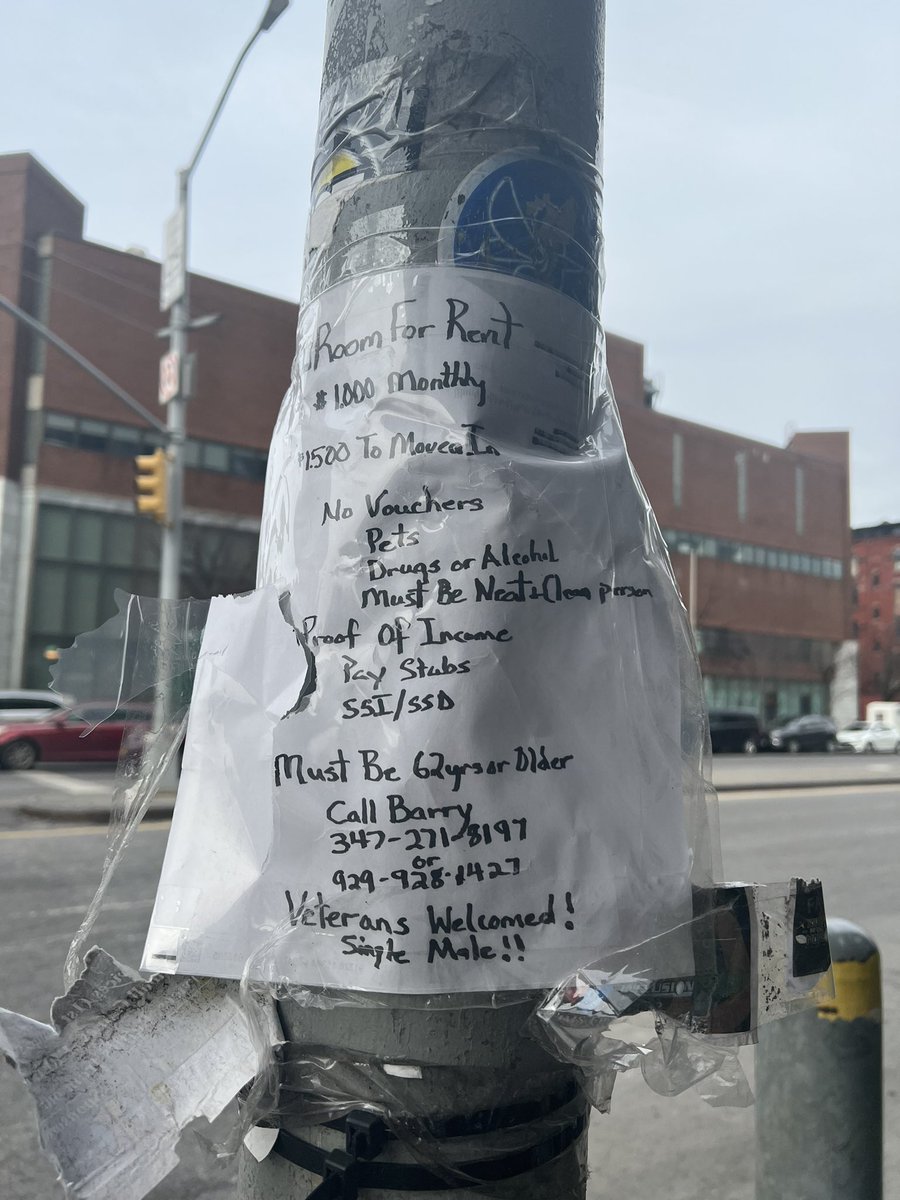 Room For Rent
$1.000 Monthly
$1.500 To Move In
No Vouchers
Pets
Drugs or Alcohol
Must Be Neat & Clean person
Proof Of Income
Pay Stubs
SSI/SSD
Must Be 62yrs or Older
Call Barry
347-271-8197
or
929-928-1427
Veterans Welcomed!
Single Male!!